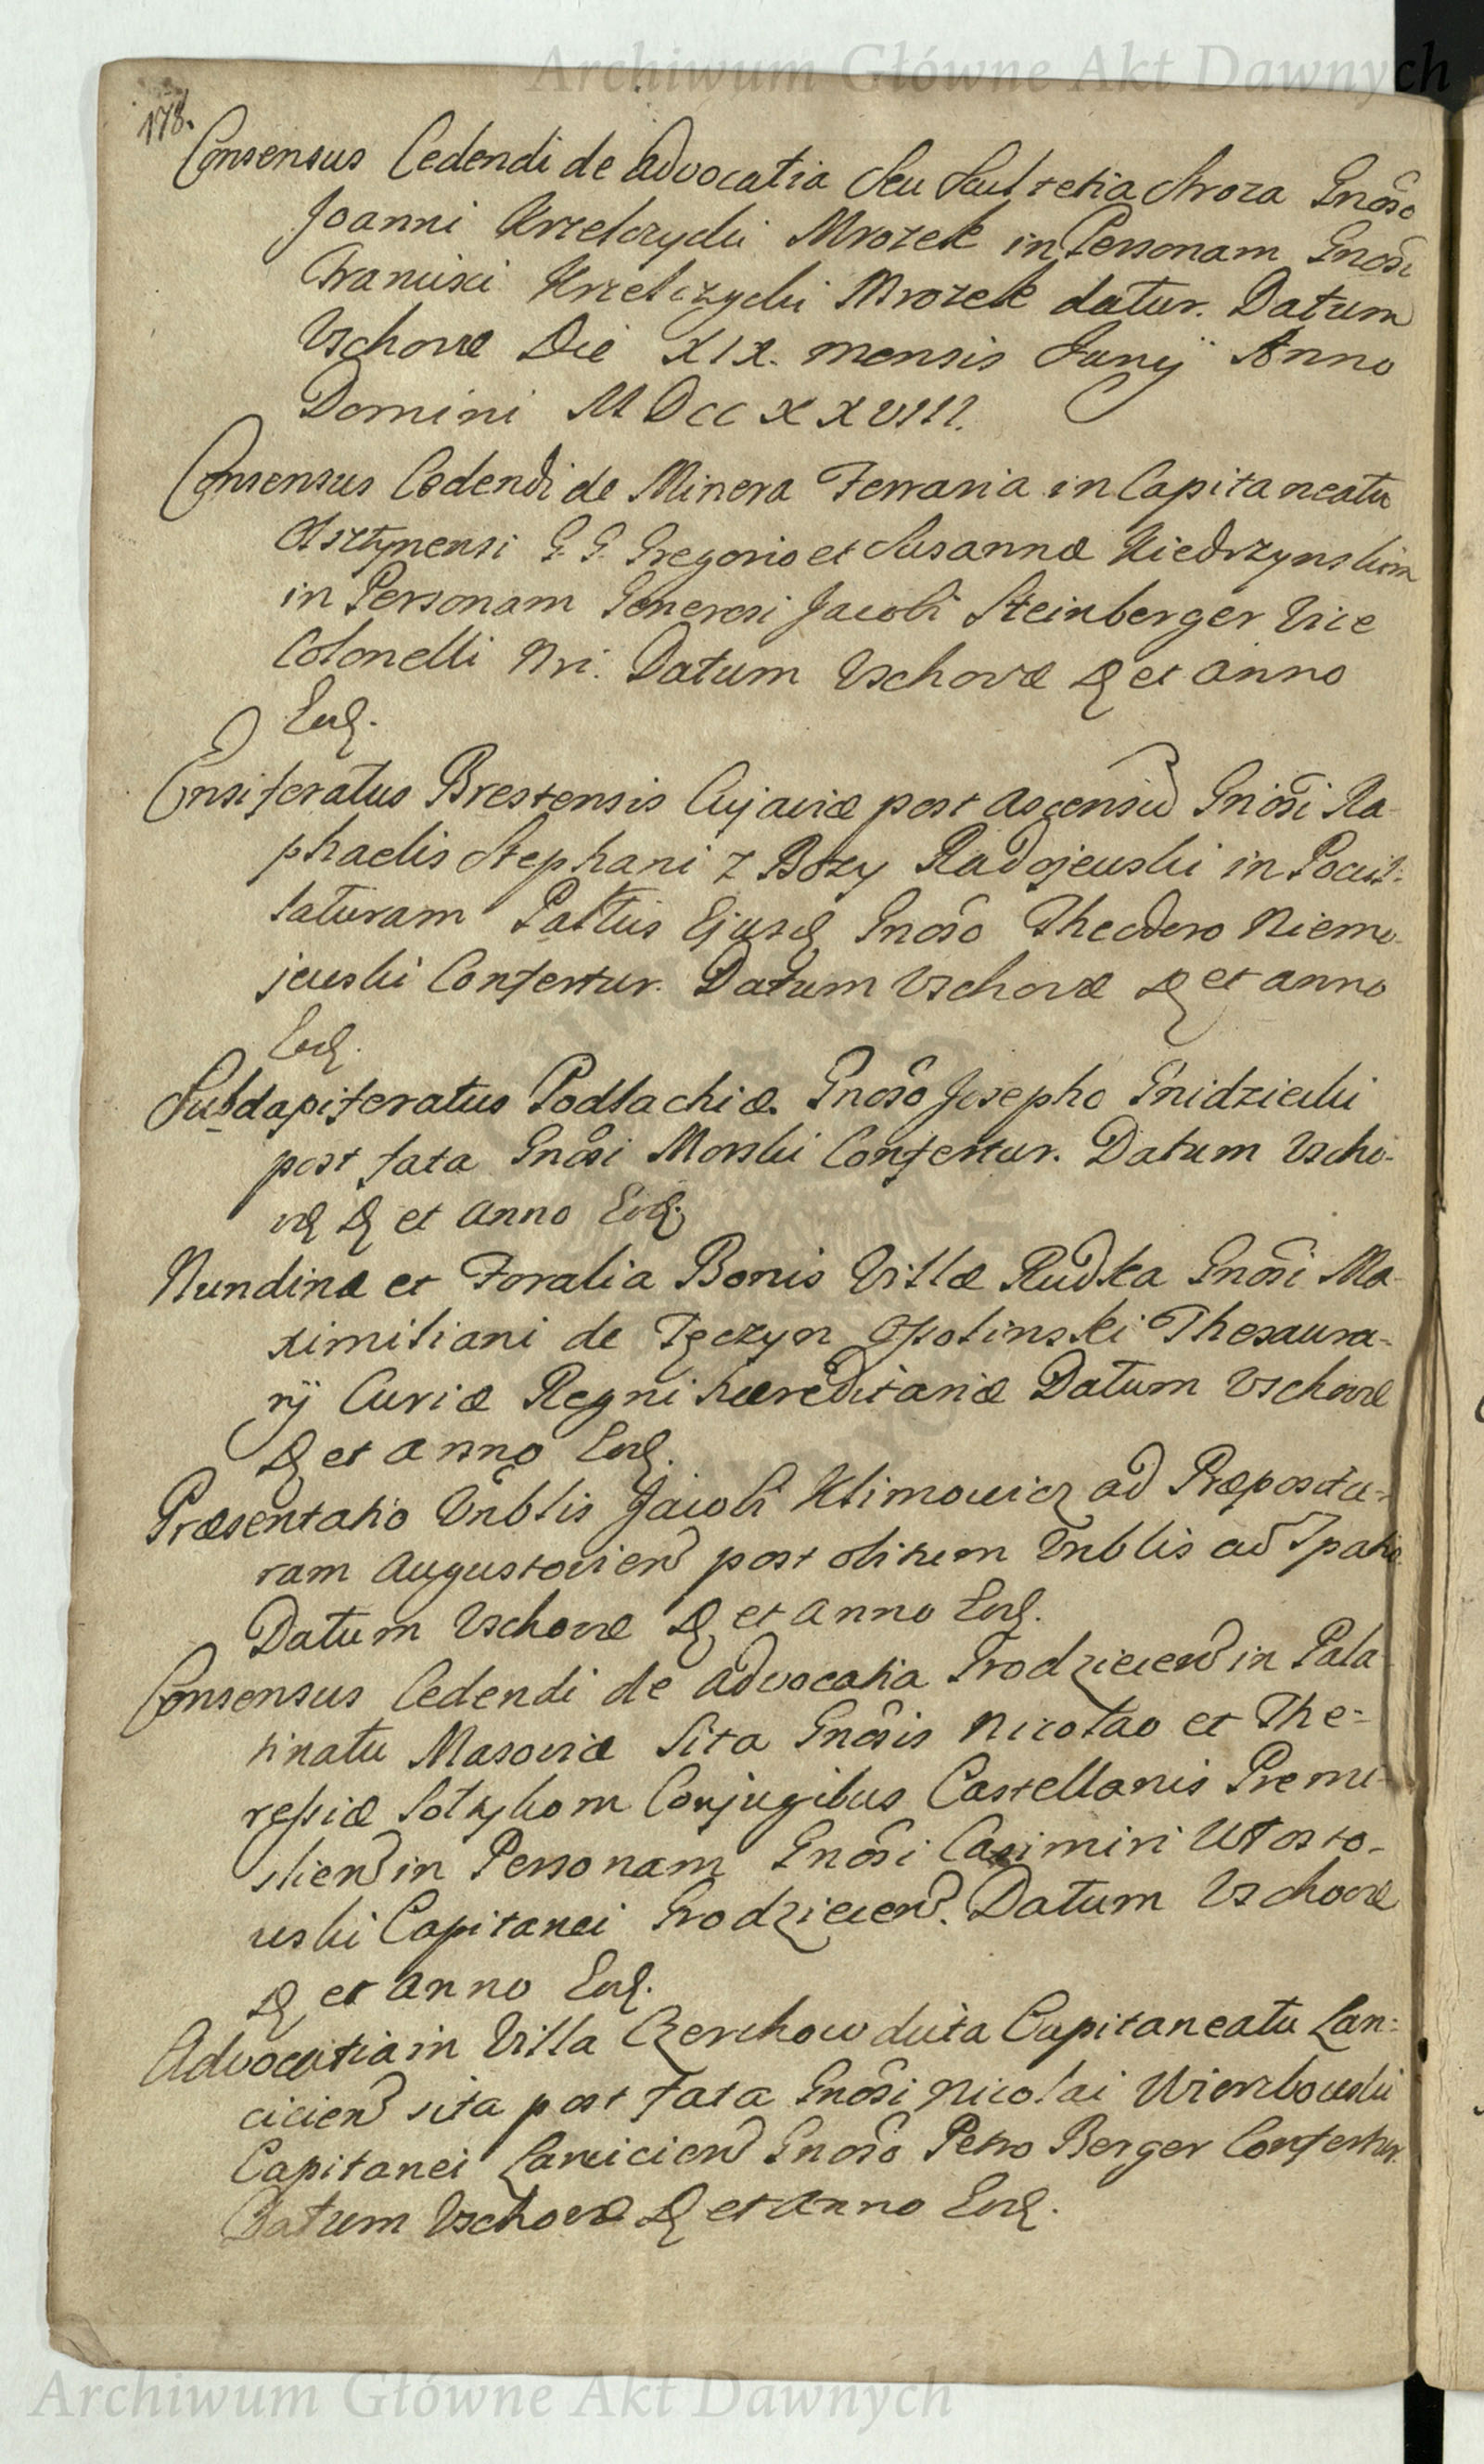 Archiwum Główne Akt Dawnych
178.
Consensus Cedendi de Advocatia Seu Scultetia Sroza Gnoso
Joanni Krzelczycki Mrozek in Personam Gnosi
Francisci Krzelczycki Mrozek datur. Datum
Vschovæ Die XIX. mensis Junij Anno
Domini MDccxxviii.
Consensus Cedendi de Minera Ferraria in Capitaneatu
Olsztynensi G. G. Gregorio et Susannæ Niedrzynskim
in Personam Generosi Jacobi Steinberger Vice
Colonelli Nri. Datum Vschovæ D et anno
Eod.
Ensiferatus Brestensis Cujaviæ post ascensu Gnosi Ra-
phaelis Stephani z Bozy Radojewski in Pocil-
laturam Pallus Ejusd Gnoso Theodoro Niemo-
jewski Confertur. Datum Vschovæ D et anno
Eod.
Subdapiferatus Podlachiæ Gnoso Josepho Gnidziecki
post fata Gnosi Morski Confertur. Datum Vscho-
væ D et anno Eod.
Nundinæ et Foralia Bonis Villæ Rudka Gnosi Ma-
ximiliani de Tęczyn Ossolinski Thesaura-
rij Curiæ Regni hæreditariæ Datum Vschovæ
D et anno Eod.
Præsentatio Vnblis Jacobi Klimowicz ad Præpositu-
ram Augustovien post obitum Vnblis ad
Datum Vschovæ D et anno Eod.
Consensus Cedendi de advocatia Grodziecen in Pala-
tinatu Masoviæ Sita Gnosis Nicolao et The-
resiæ Soltykom Conjugibus Castellanis Premi-
slien in Personam Gnosi Casimiri
Capitanei Grodziecen. Datum Vschovæ
D et anno Eod.
Advocatia in Villa Czerchow dicta Capitaneatu Lan-
cicien sita post fata Gnosi Nicolai Wierzbowski
Capitanei Lancicien Gnoso Petro Berger Confertur.
Datum Vschovæ D et anno Eod.
Archiwum Główne Akt Dawnych